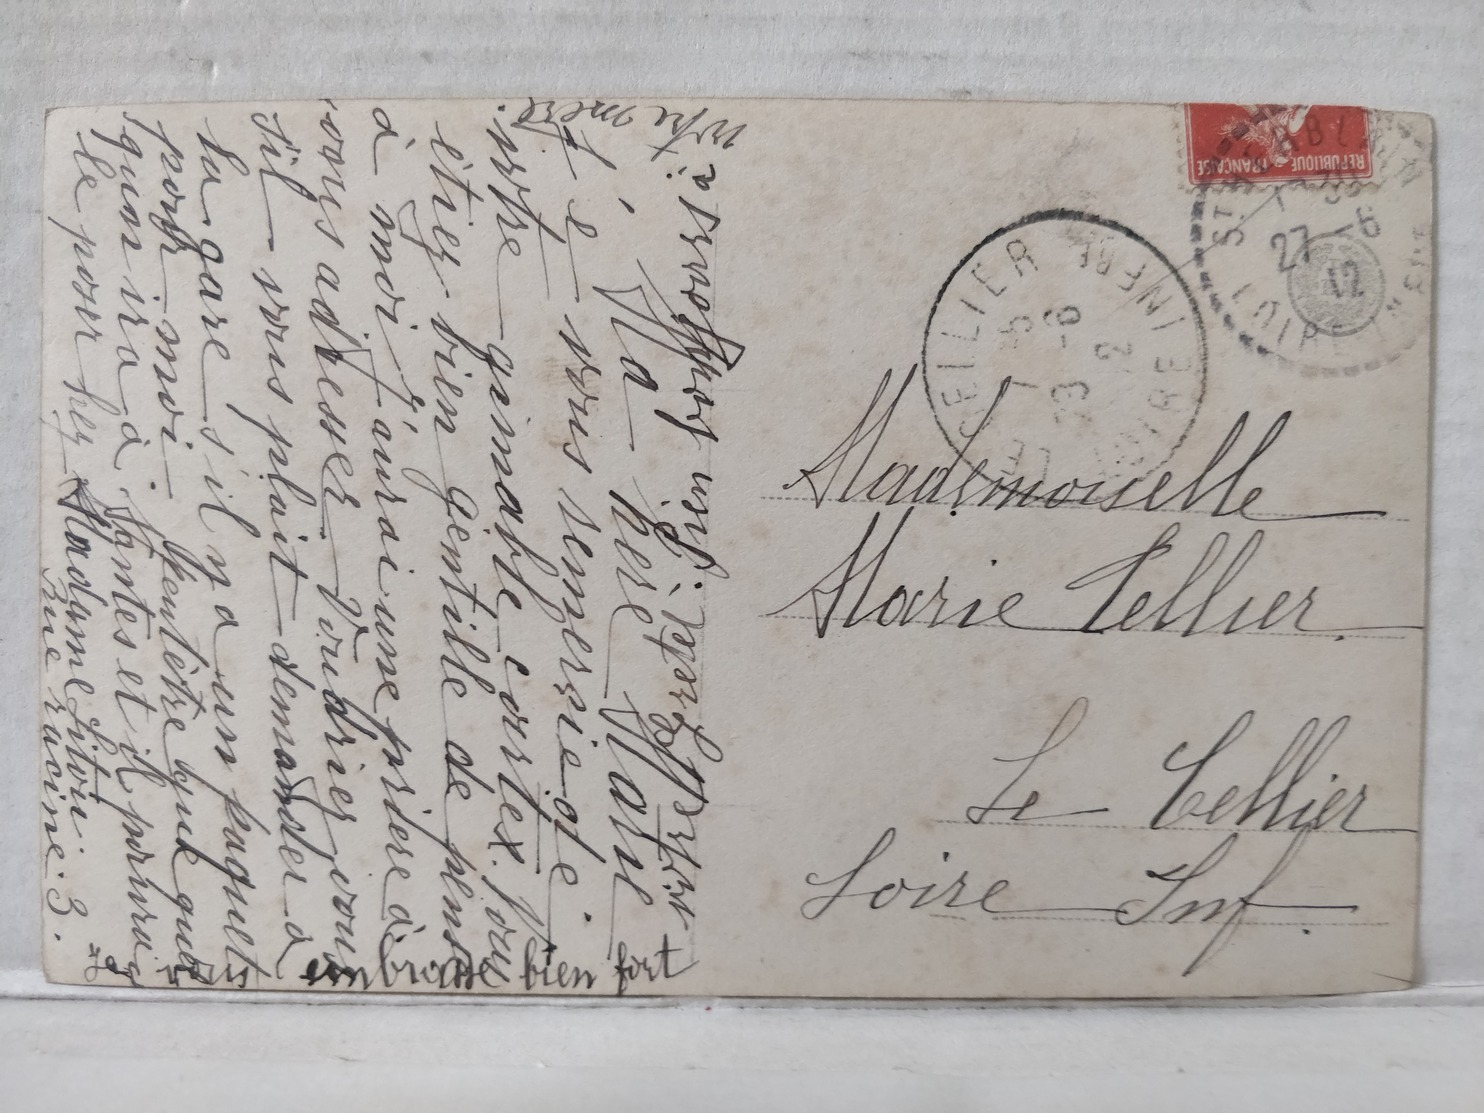 Ma chère Marie
Je vous remercie de
votre aimable carte. vous
êtiez bien gentille de penser
à moi. J'aurai une prière à
vous adresser Voudriez vous
s'il vous plait demander à
la gare s'il y a un paquet
pour moi. Peutêtre que quel
qu'un ira à Nantes et il pourra
le pour chez Madame
Rue racine 3.
Je vous embrasse bien fort
bien
à
votre mère.
Mademoiselle
Marie Tellier.
Le Cellier
Loire Inf.
LE CELLIER
LOIRE INFRE
7 -15
23 -6
12
27 -6
12
LOIRE INFRE
REPUBLIQUE FRANÇAISE